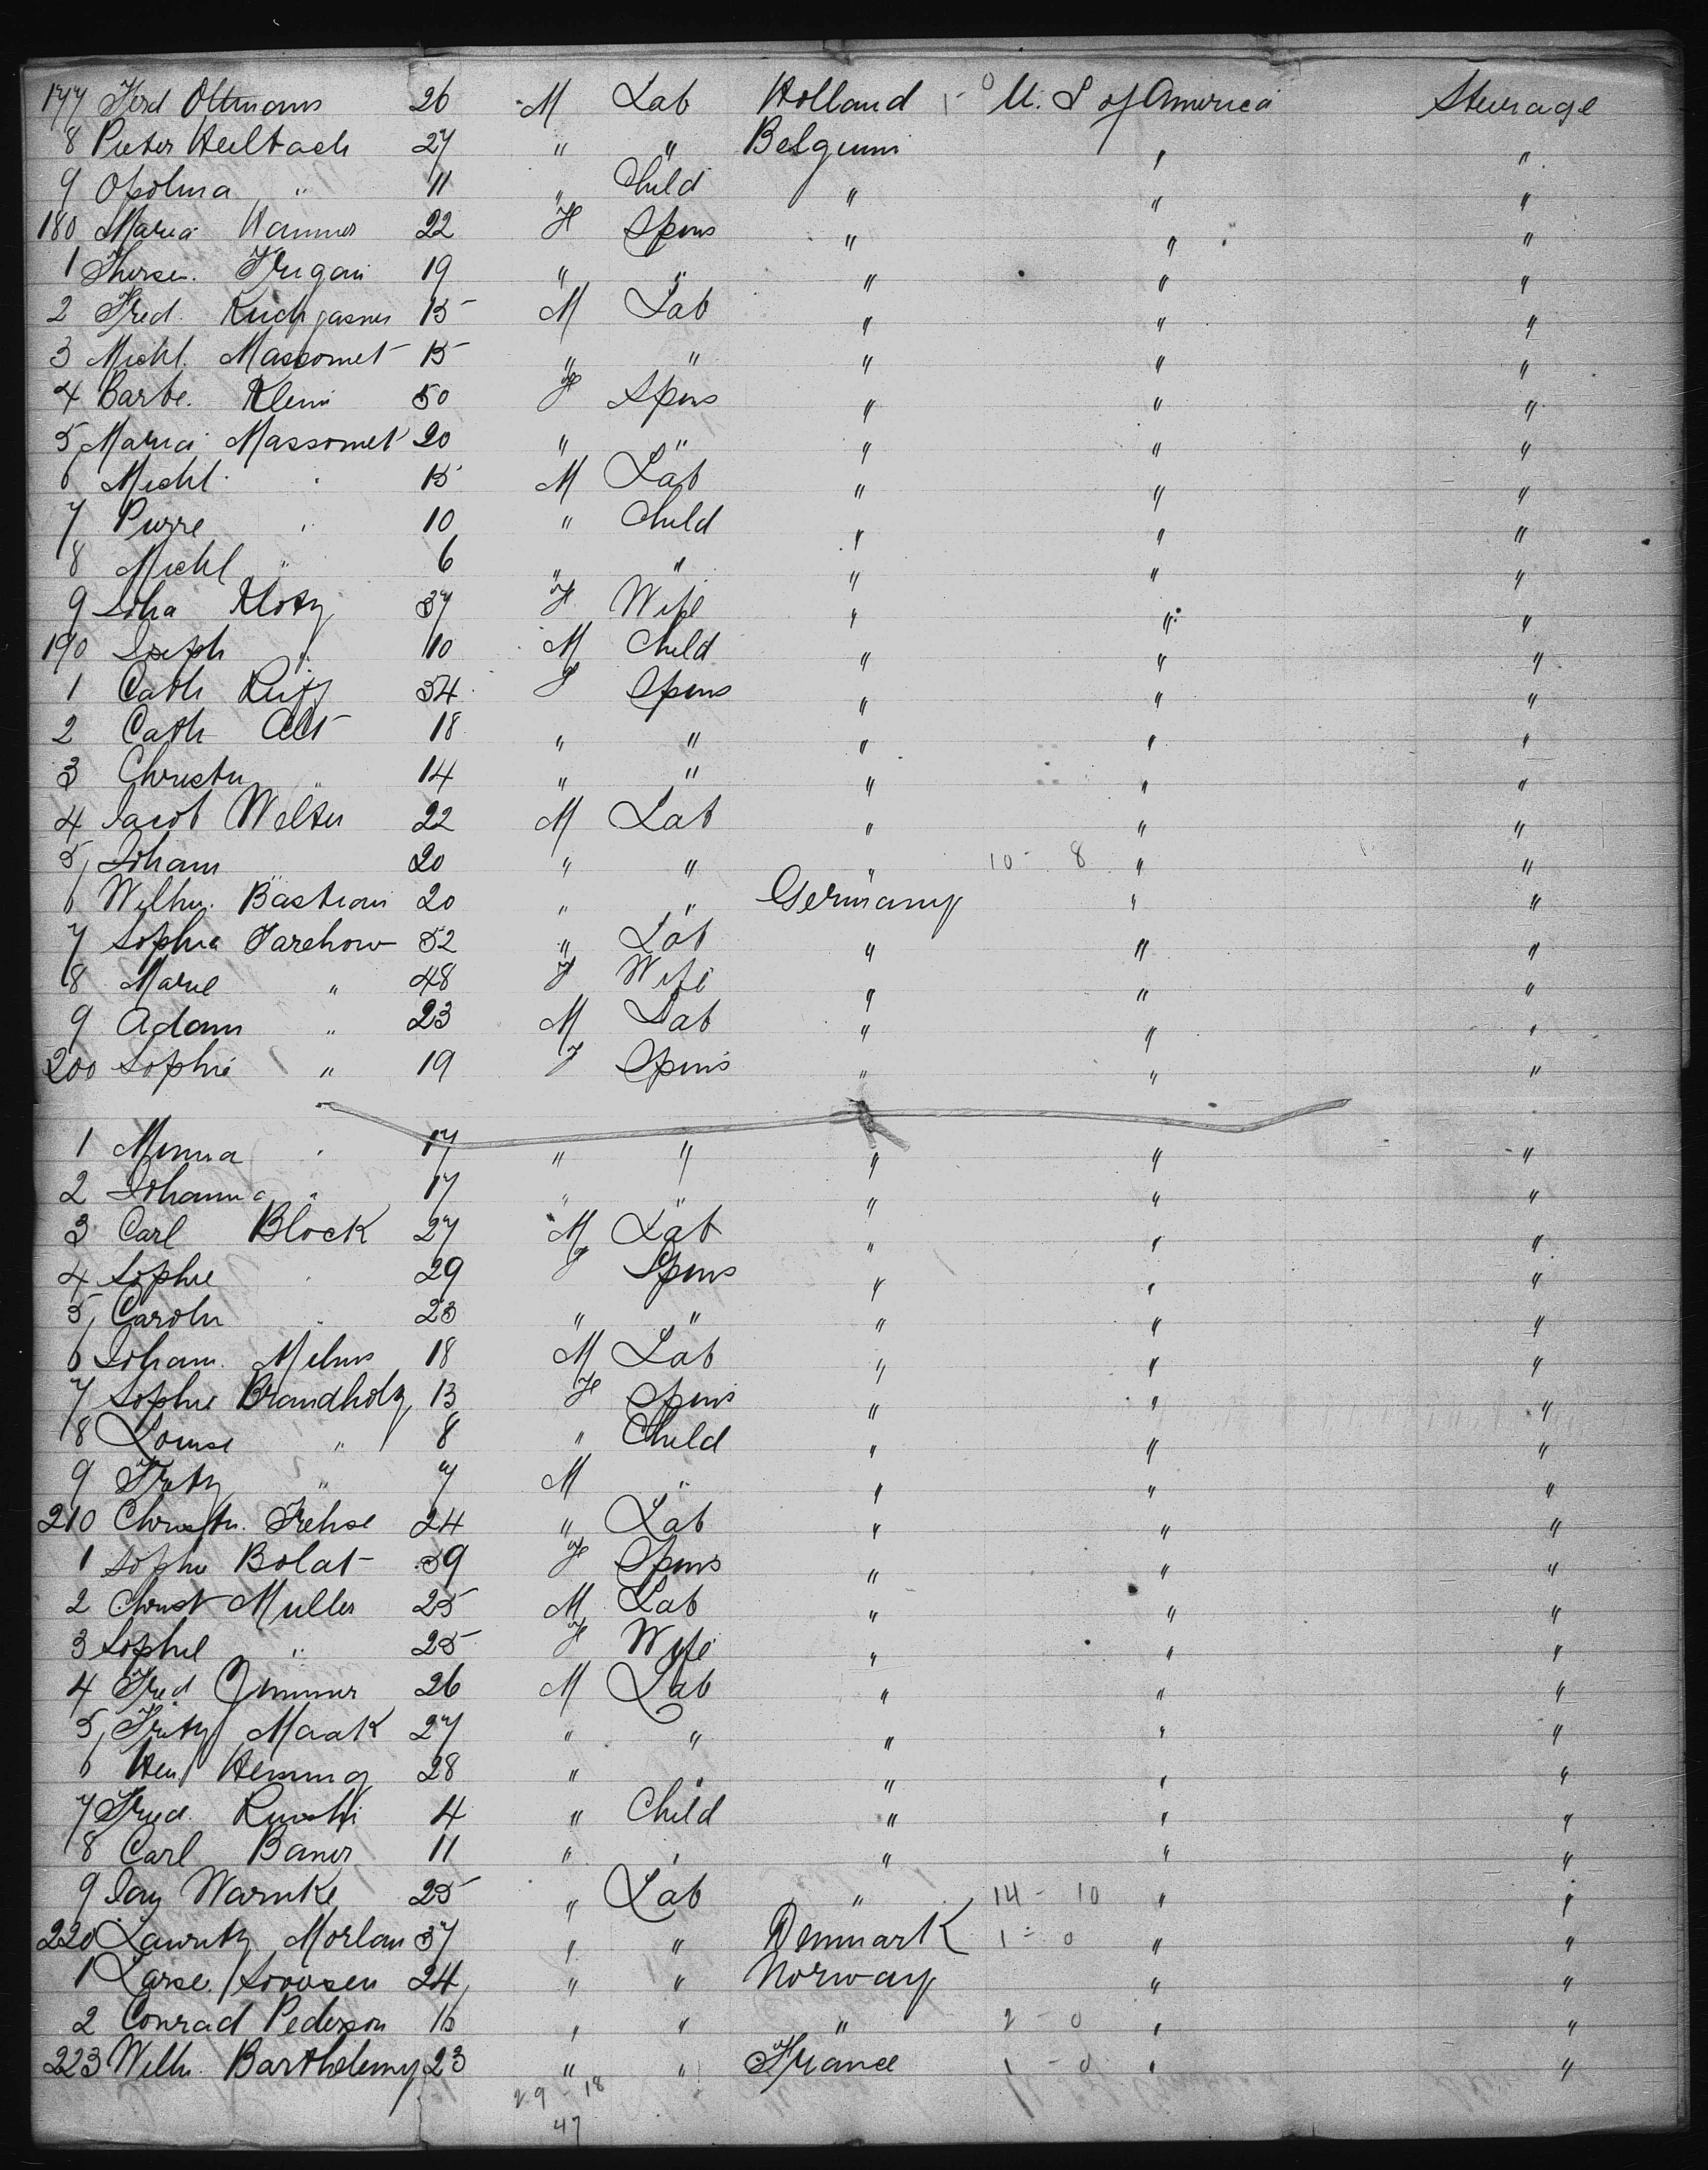 177 Ferd Oltmans 26 M Lab Holland 1 - 0 U. S of America Steerage
8 Pieter Heilbach 27 " " Belgium " "
9 " 11 " Child " " "
180 Maria Wanner 22 F Spins " " "
1 19 " " " " "
2 Fred. Kirchgasner 15 M Lab " " "
3 Michl. Massomet 15 " " " " "
4 Barbe. Klein 50 F Spins " " "
5 Maria Massomet 20 " " " " "
6 Michl. " 15 M Lab " " "
7 Pierre " 10 " Child " " "
8 Michl " 6 " " " " "
9 Klotz 37 F Wife " " "
190 Joseph " 10 M Child " " "
1 Cath 34 F Spins " " "
2 Cath Alt 18 " " " " "
3 Christn " 14 " " " " "
4 Jacob Welter 22 M Lab " " "
5 Johann 20 " " " 10 - 8 " "
6 Wilhm. Bastian 20 " " Germany " "
7 Sophia Jarchow 52 " Lab " " "
8 Marie " 48 F Wife " " "
9 Adam " 23 M Lab " " "
200 Sophie " 19 F Spins " " "
1 Minna " 17 " " " " "
2 Johanna " 17 " " " " "
3 Carl Block 27 M Lab " " "
4 Sophie " 29 F Spins " " "
5 Carolin " 23 " " " " "
6 Johann. 18 M Lab " " "
7 Sophie Brandholz 13 F Spins " " "
8 Louise " 8 " Child " " "
9 Fritz " 7 M " " " "
210 Christn. Frehse 24 " Lab " " "
1 Sophie Bolat 39 F Spins " " "
2 Christ Muller 25 M Lab " " "
3 Sophie " 25 F Wife " " "
4 Fried 26 M Lab " " "
5 Fritz Maak 27 " " " " "
6 Hen Henning 28 " " " " "
7 Fried. 4 " Child " " "
8 Carl 11 " " " " "
9 Warnke 25 " Lab " 14 - 10 " "
220 Lauritz Morlan 37 " " Denmark 1 - 0 " "
1 Larse. 24 " " Norway " "
2 Conrad Pederson 16 " " " 2 - 0 " "
223 Wilh. Barthelemy 23 " " France 1 - 0 " "
29 - 18
47